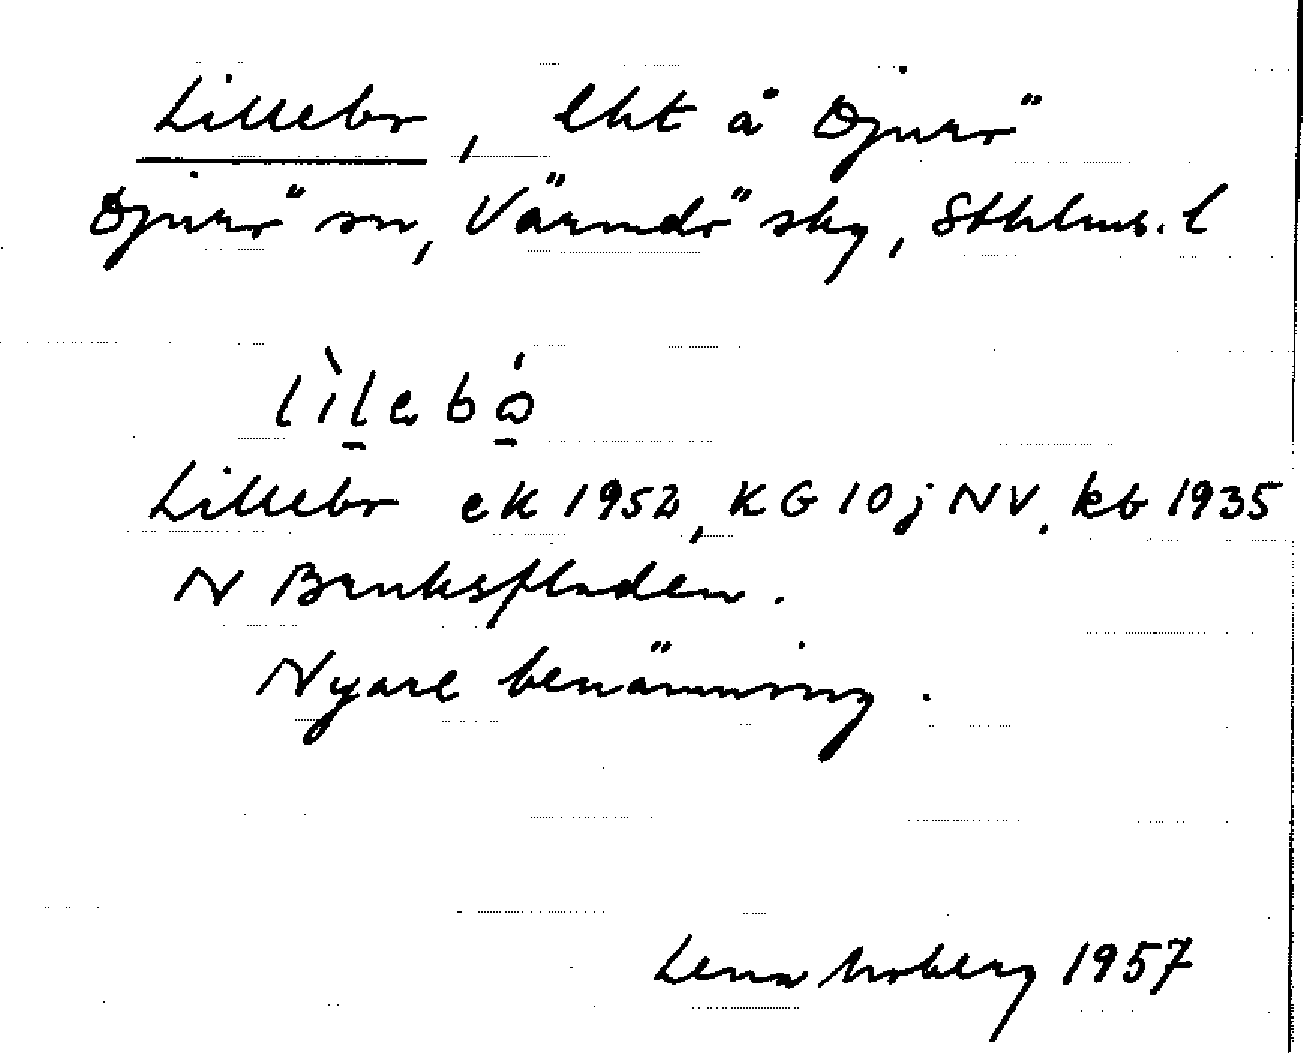 Lillebo, lht å Djurö
Djurö sn, Värmdö skg, Sthlms. l
lìlebó
Lillebo ek 1952, KG 10j NV. kb 1935
N Bruksfladen.
Nyare benämning.
Lena Moberg 1957